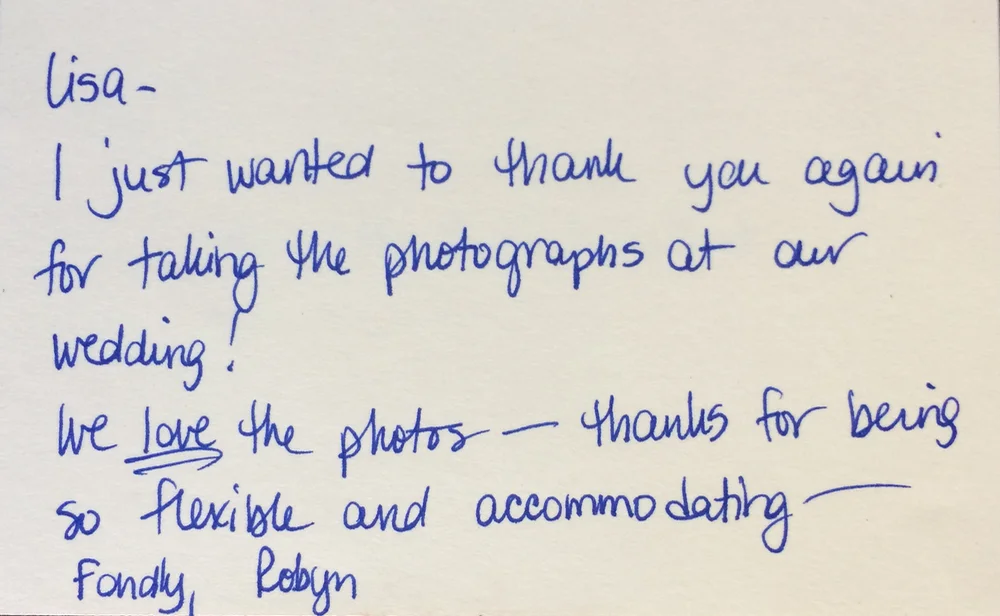 Lisa-
I just wanted to thank you again
for taking the photographs at our
wedding!
We love the photos — thanks for being
so flexible and accommodating —
Fondly, Robyn